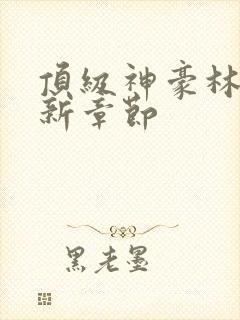 頂級神豪林
新章節
黑老墨